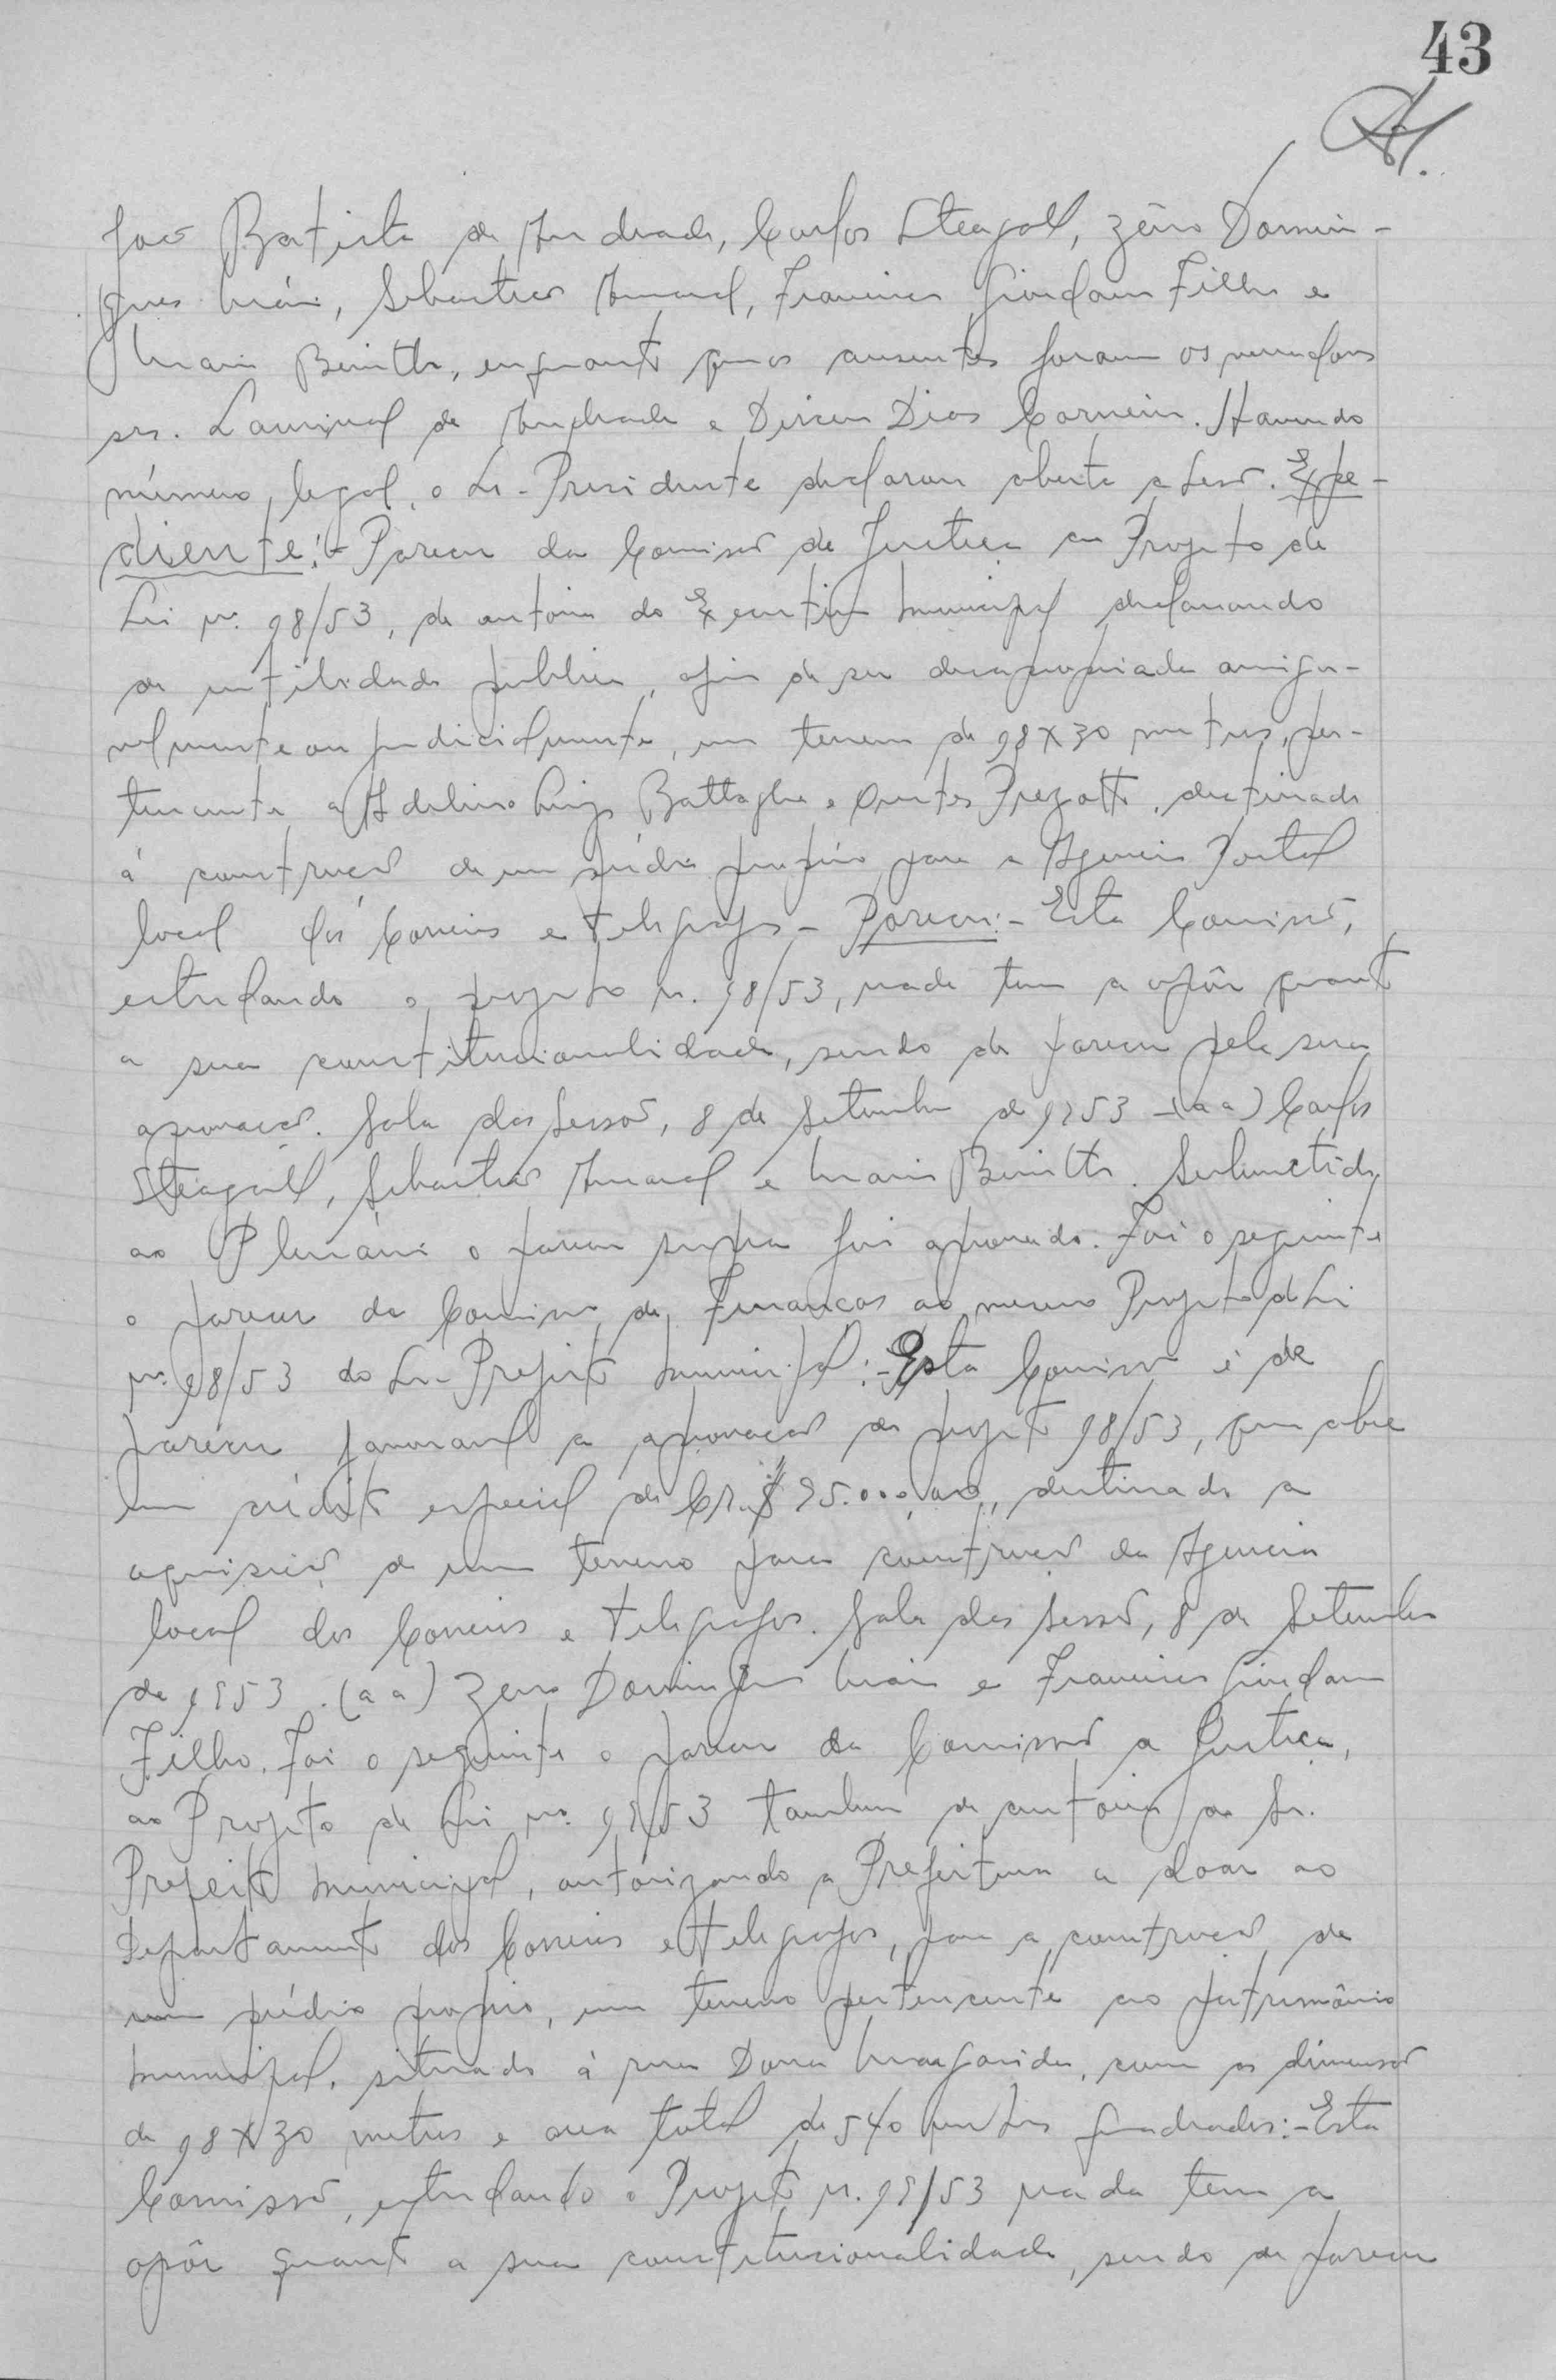 43
João Batista de Andrade, Carlos Steagall, Zêno Domin-
gues Maia, Sebastião Amaral, Francisco Giordano Filho e
Mario Benitto, enquanto que os ausentes foram os vereadores
srs. Lourival de Andrade e Dirceu Dias Carneiro. Havendo
número legal, o Sr. Presidente declarou aberta a sessão. Expe-
diente:- Parecer da Comissão de Justiça ao Projeto de
Lei nº. 18/53, de autoria do Executivo Municipal declarando
de utilidade publica, afim de ser desapropriada amiga-
velmente ou judicialmente, um terreno de 18x30 metros, per-
tencente a Adelino Luiz Battaglia e Orestes Prezotto, destinado
á construção de um prédio proprio para a Agencia Postal
local dos Correios e Telegrafos - Parecer:- Esta Comissão,
estudando o projeto n. 18/53, nada tem a opôr quanto
a sua constitucionalidade, sendo de parecer pela sua
aprovação. Sala das Sessões, 8 de Setembro de 1953 - (aa) Carlos
Steagall, Sebastião Amaral e Mario Benitto. Submetido
ao Plenário o parecer supra foi aprovado. Foi o seguinte
o parecer da Comissão de Finanças ao mesmo Projeto de Lei
nº. 18/53 do Sr. Prefeito Municipal:- Esta Comissão é de
parecer favoravel a aprovação do projeto 18/53, que abre
um crédito especial de CR.$ 25.000,00, destinado a
aquisição de um terreno para construção da Agencia
local dos Correios e Telegrafos. Sala das Sessões, 8 de Setembro
de 1953. (aa) Zeno Domingues Maia e Francisco Giordano
Filho. Foi o seguinte o parecer da Comissão a Justiça,
ao Projeto de Lei nº. 19/53 tambem de autoria do Sr.
Prefeito Municipal, autorizando a Prefeitura a doar ao
Departamento dos Correios e Telegrafos, para a construção de
um prédio proprio, um terreno pertencente ao patrimônio
municipal, situado á rua Dona Margarida, com as dimensões
de 18x30 metros e area total de 540 metros quadrados:- Esta
Comissão, estudando o Projeto n. 19/53 nada tem a
opôr quanto a sua constitucionalidade, sendo de parecer